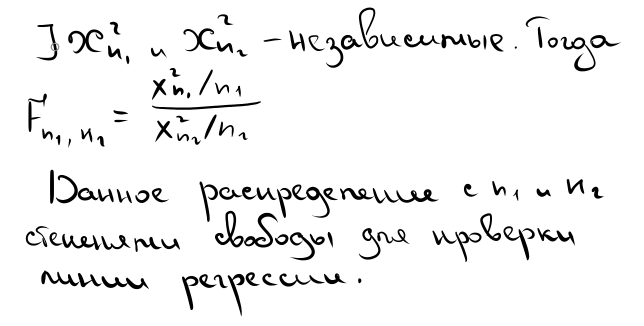 ] χ²ₙ₁ и χ²ₙ₂ – независимые. Тогда
Fₙ₁,ₙ₂ = (χ²ₙ₁/n₁) / (χ²ₙ₂/n₂)
Данное распределение с n₁ и n₂
степенями свободы для проверки
линии регрессии.